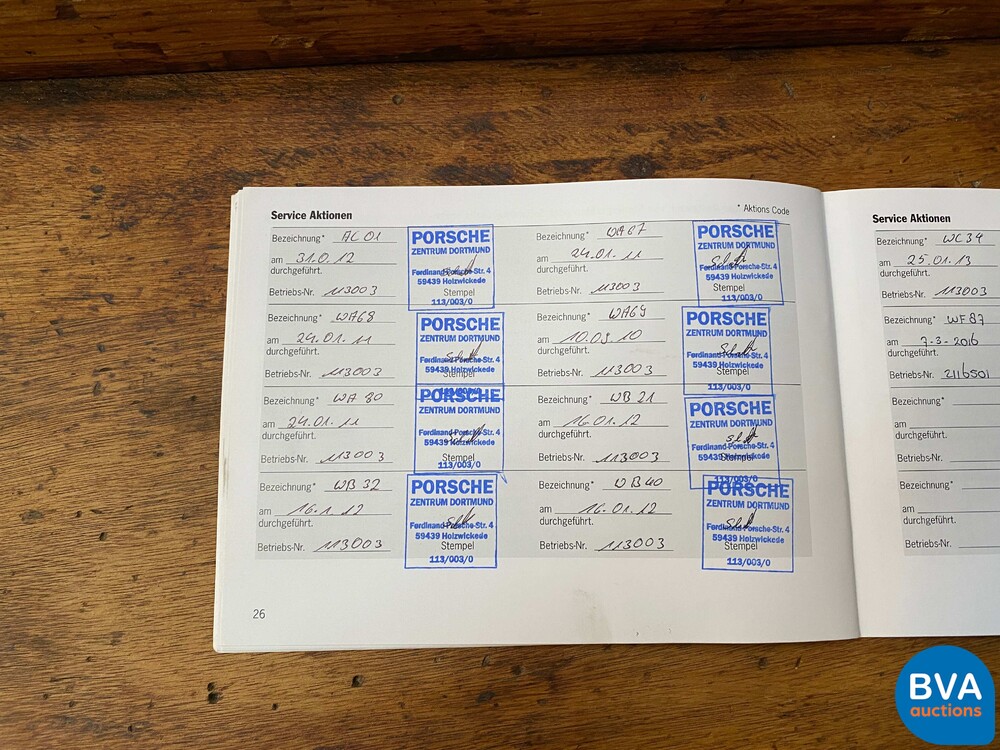 Service Aktionen
* Aktions Code
Bezeichnung* AL01
am 31.0.12
durchgeführt.
Betriebs-Nr. 113003
PORSCHE
ZENTRUM DORTMUND
Ferdinand-Porsche-Str. 4
59439 Holzwickede
Stempel
113/003/0
Bezeichnung* WA67
am 24.01.11
durchgeführt.
Betriebs-Nr. 113003
PORSCHE
ZENTRUM DORTMUND
Ferdinand-Porsche-Str. 4
59439 Holzwickede
Stempel
113/003/0
Bezeichnung* WA68
am 24.01.11
durchgeführt.
Betriebs-Nr. 113003
PORSCHE
ZENTRUM DORTMUND
Ferdinand-Porsche-Str. 4
59439 Holzwickede
Stempel
113/003/0
Bezeichnung* WA69
am 10.09.10
durchgeführt.
Betriebs-Nr. 113003
PORSCHE
ZENTRUM DORTMUND
Ferdinand-Porsche-Str. 4
59439 Holzwickede
Stempel
113/003/0
Bezeichnung* WA80
am 24.01.11
durchgeführt.
Betriebs-Nr. 113003
PORSCHE
ZENTRUM DORTMUND
Ferdinand-Porsche-Str. 4
59439 Holzwickede
Stempel
113/003/0
Bezeichnung* WB21
am 16.01.12
durchgeführt.
Betriebs-Nr. 113003
PORSCHE
ZENTRUM DORTMUND
Ferdinand-Porsche-Str. 4
59439 Holzwickede
Stempel
113/003/0
Bezeichnung* WB32
am 16.1.12
durchgeführt.
Betriebs-Nr. 113003
PORSCHE
ZENTRUM DORTMUND
Ferdinand-Porsche-Str. 4
59439 Holzwickede
Stempel
113/003/0
Bezeichnung* WB40
am 16.01.12
durchgeführt.
Betriebs-Nr. 113003
PORSCHE
ZENTRUM DORTMUND
Ferdinand-Porsche-Str. 4
59439 Holzwickede
Stempel
113/003/0
26
Service Aktionen
Bezeichnung* WC34
am 25.01.13
durchgeführt.
Betriebs-Nr. 113003
Bezeichnung* WF87
am 7-3-2016
durchgeführt.
Betriebs-Nr. 2116501
Bezeichnung*
am
durchgeführt.
Betriebs-Nr.
Bezeichnung*
am
durchgeführt.
Betriebs-Nr.
BVA
auctions